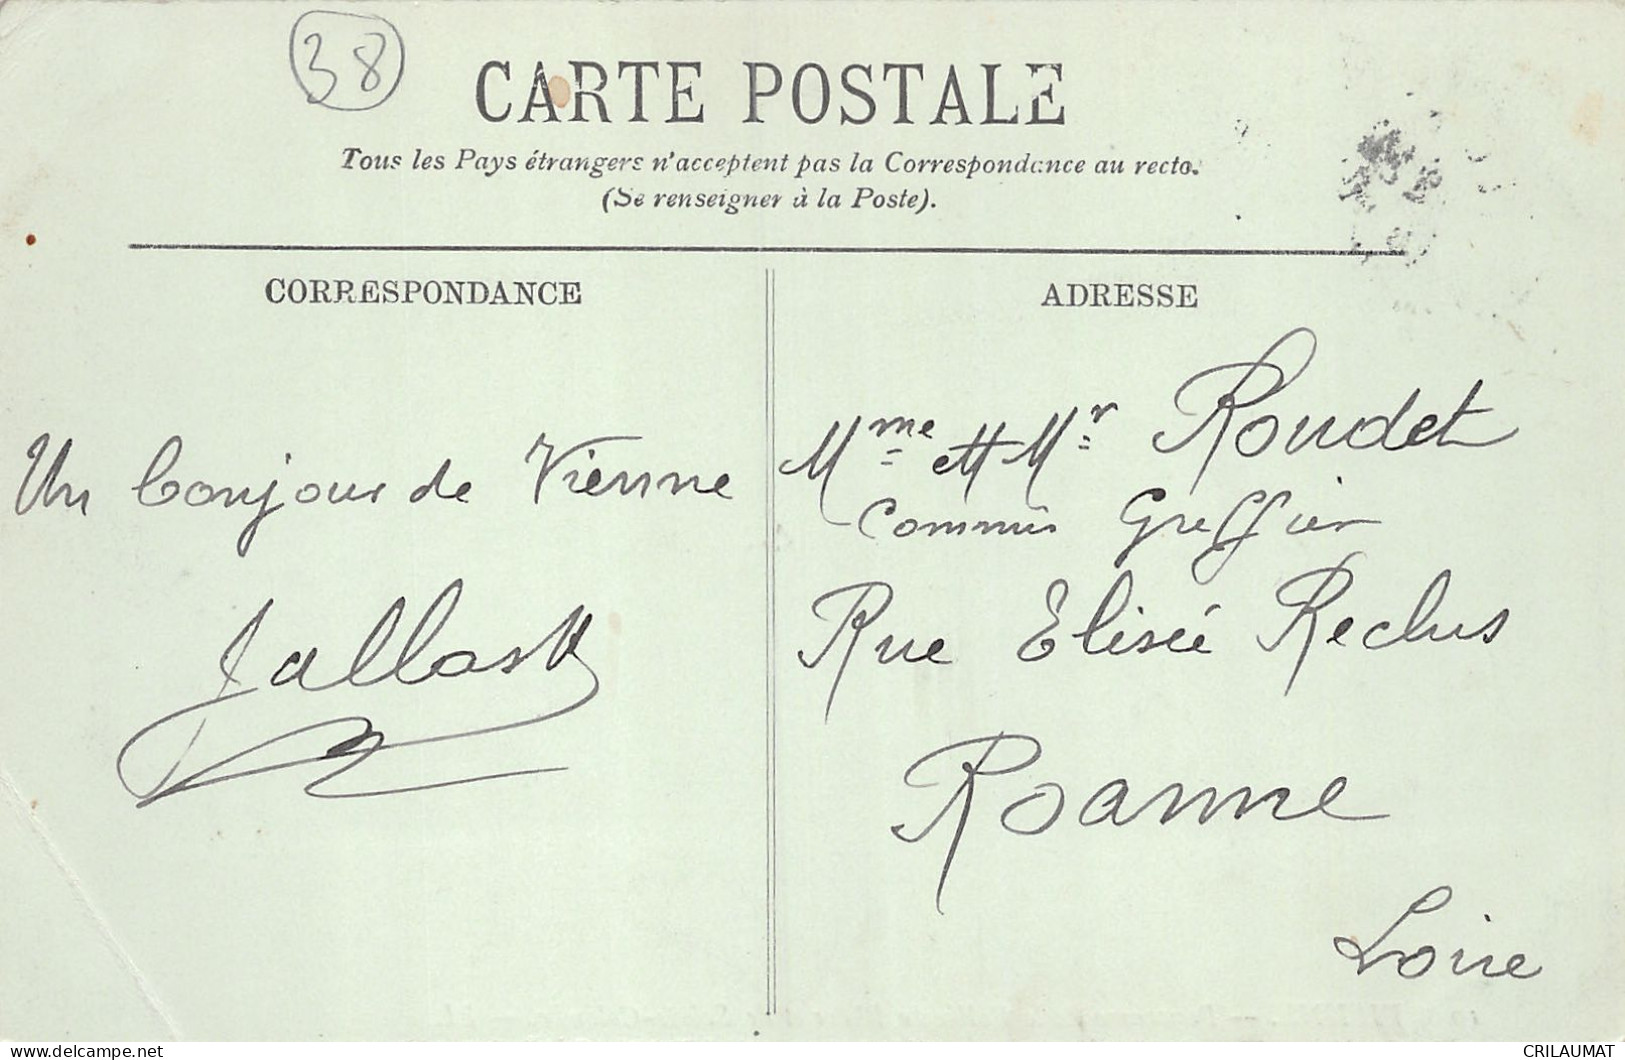 38
CARTE POSTALE
Tous les Pays étrangers n'acceptent pas la Correspondance au recto.
(Se renseigner à la Poste).
CORRESPONDANCE
Un bonjour de Vienne
ADRESSE
Mme et Mr Roudet
Commis Greffier
Rue Elisée Reclus
Roanne
Loire
CRILAUMAT